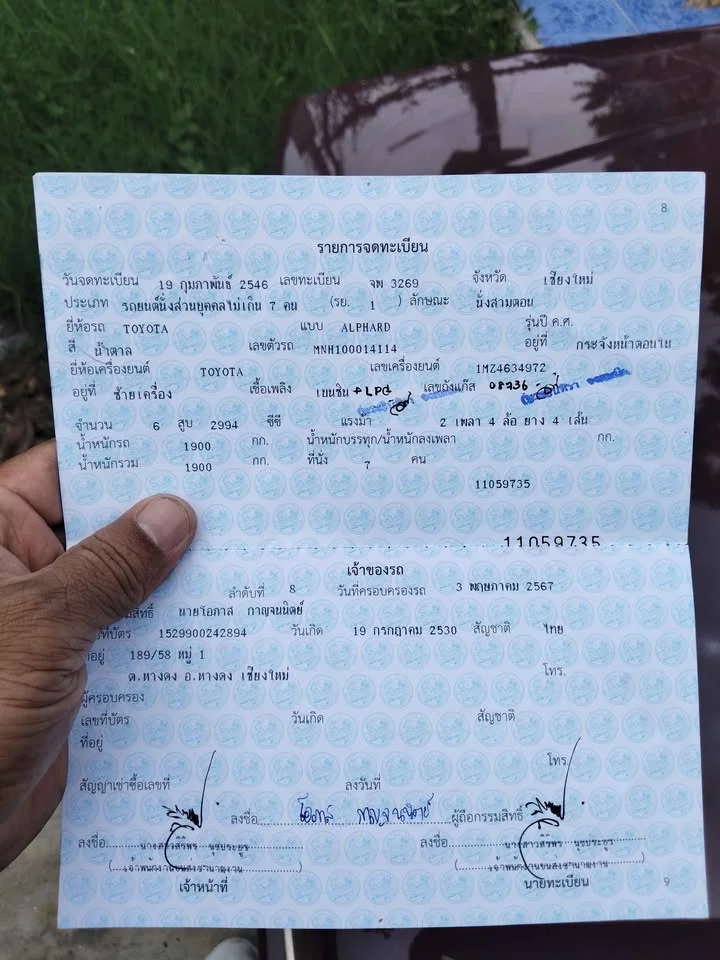 8
รายการจดทะเบียน
วันจดทะเบียน 19 กุมภาพันธ์ 2546 เลขทะเบียน จพ 3269 จังหวัด เชียงใหม่
ประเภท รถยนต์นั่งส่วนบุคคลไม่เกิน 7 คน (รย. 1 ) ลักษณะ นั่งสามตอน
ยี่ห้อรถ TOYOTA แบบ ALPHARD รุ่นปี ค.ศ.
สี น้ำตาล เลขตัวรถ MNH100014114 อยู่ที่ กระจังหน้าตอนใน
ยี่ห้อเครื่องยนต์ TOYOTA เลขเครื่องยนต์ 1MZ4634972
อยู่ที่ ซ้ายเครื่อง เชื้อเพลิง เบนซิน +LPG เลขถังแก๊ส 08736
จำนวน 6 สูบ 2994 ซีซี แรงม้า 2 เพลา 4 ล้อ ยาง 4 เส้น
น้ำหนักรถ 1900 กก. น้ำหนักบรรทุก/น้ำหนักลงเพลา กก.
น้ำหนักรวม 1900 กก. ที่นั่ง 7 คน
11059735
11059735
เจ้าของรถ
ลำดับที่ 8 วันที่ครอบครองรถ 3 พฤษภาคม 2567
นายโอภาส กาญจนนิตย์
1529900242894 วันเกิด 19 กรกฎาคม 2530 สัญชาติ ไทย
189/58 หมู่ 1
ต.หางดง อ.หางดง เชียงใหม่ โทร.
ผู้ครอบครอง
เลขที่บัตร วันเกิด สัญชาติ
ที่อยู่
โทร.
สัญญาเช่าซื้อเลขที่ ลงวันที่
ลงชื่อ โอภาส กาญจนนิตย์ ผู้ถือกรรมสิทธิ์
ลงชื่อ ลงชื่อ
เจ้าหน้าที่ นายทะเบียน
9